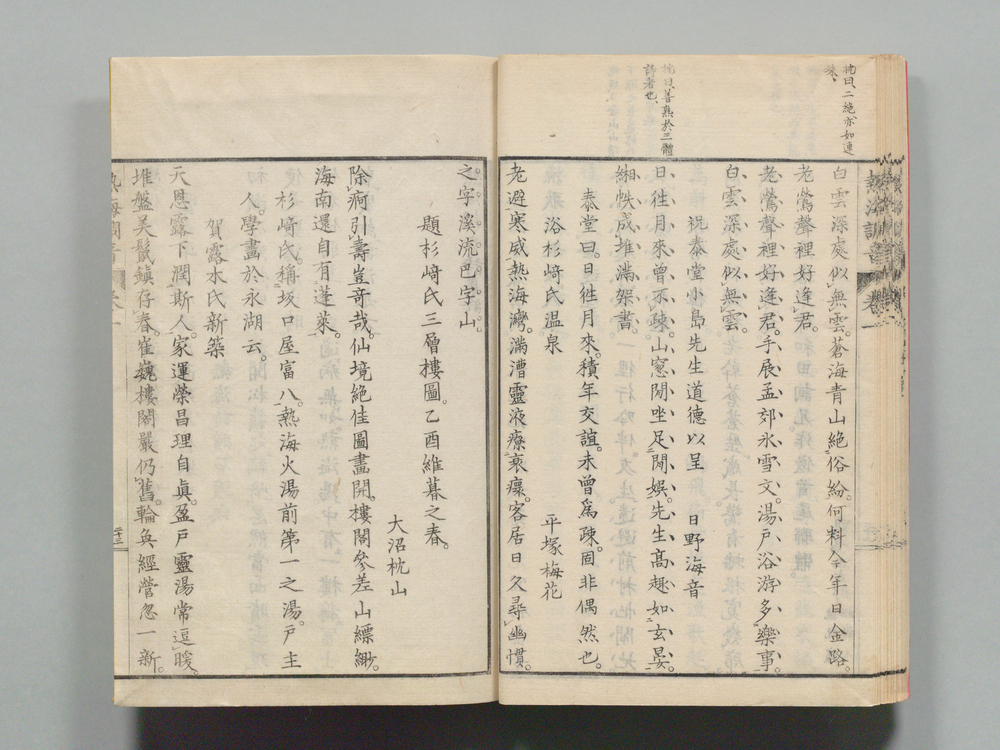 枕曰、二絶亦如連
珠、
枕曰、善熟於三體
詩者也、
熱海
卷一
白雲深處似無雲。蒼海青山絶俗紛。何料今年日金路。
老鶯聲裡好逢君。
老鶯聲裡好逢君。手展孟郊氷雪文。湯戸浴游多樂事。
白雲深處似無雲。
祝泰堂小島先生道德以呈　日野海音
日徃月來曾不疎。山窓閒坐足閒娯。先生髙趣如玄晏。
緗帙成堆滿架書。
泰堂曰。日徃月來。積年交誼。未曾爲疎。固非偶然也。
浴杉﨑氏温泉　　　　平塚梅花
老避寒威熱海灣。滿漕靈液療衰癏。客居日久尋幽慣。
之字溪流巴字山
題杉﨑氏三層樓圖。乙酉維暮之春。
大沼枕山
除痾引壽豈竒哉。仙境絶佳圖畫開。樓閣參差山縹緲。
海南還自有蓬萊。
杉﨑氏。稱坂口屋富八。熱海火湯前第一之湯。戸主
人。學畫於永湖云。
賀露木氏新築
天恩露下潤斯人。家運榮昌理自眞。盈戸靈湯常逗暖。
堆盤美鬆鎭存春。崔巍樓閣嚴仍舊。輪奐經營忽一新。
二十三